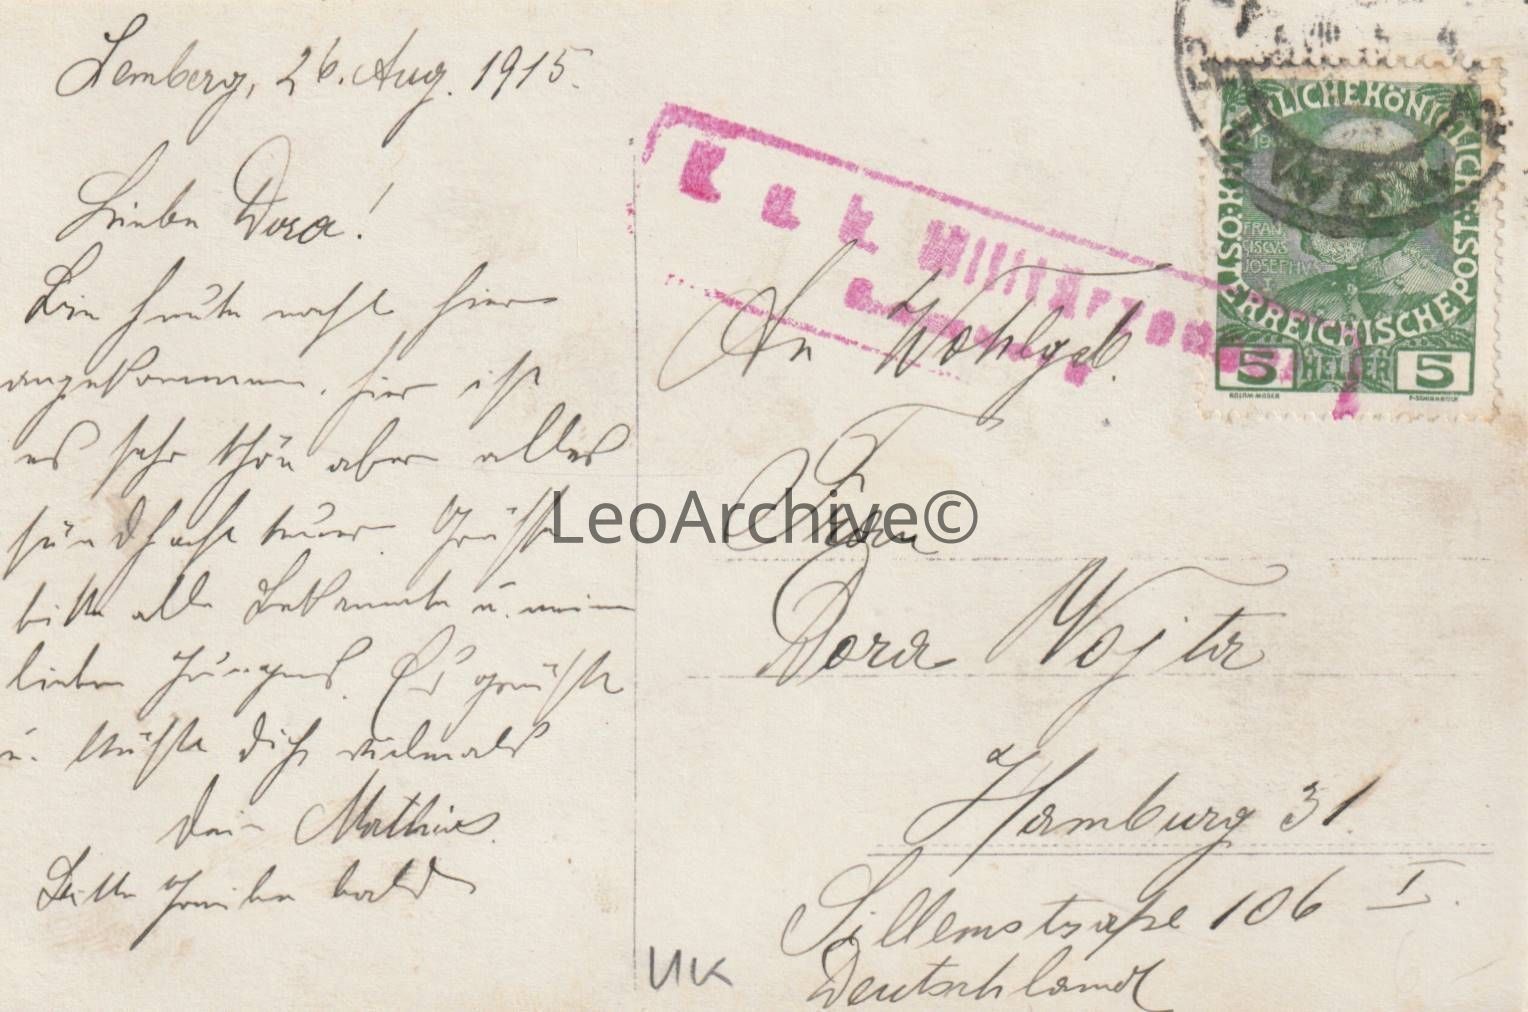 Lemberg, 26. Aug. 1915.
Liebe Dora!
Bin heute nacht hier
angekommen, hier ist
es sehr schön aber alles
sündhaft teuer. Grüße
bitte alle Bekannte u. meine
lieben Jungens. Es grüßt
u. küßt Dich vielmals
Dein Mathias.
Bitte schreibe bald
K. u. k. Militärzensur
KAISERLICHE KÖNIGLICHE
ÖSTERREICHISCHE POST
FRAN
CISCVS
JOSEPHVS
I
5 HELLER 5
An Wohlgeb.
Frau
Dora Wojta
Hamburg 31.
Sillemstraße 106 I.
Deutschland
UK
LeoArchive©